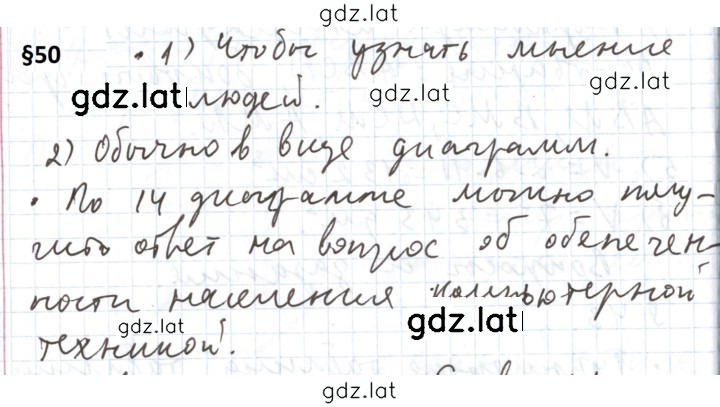 gdz.lat
§50 • 1) Чтобы узнать мнение
gdz.lat людей. gdz.lat gdz.lat
2) Обычно в виде диаграмм.
• По 14 диаграмме можно полу-
чить ответ на вопрос об обепечен-
ности населения компьютерной
gdz.lat gdz.lat
техникой.
gdz.lat